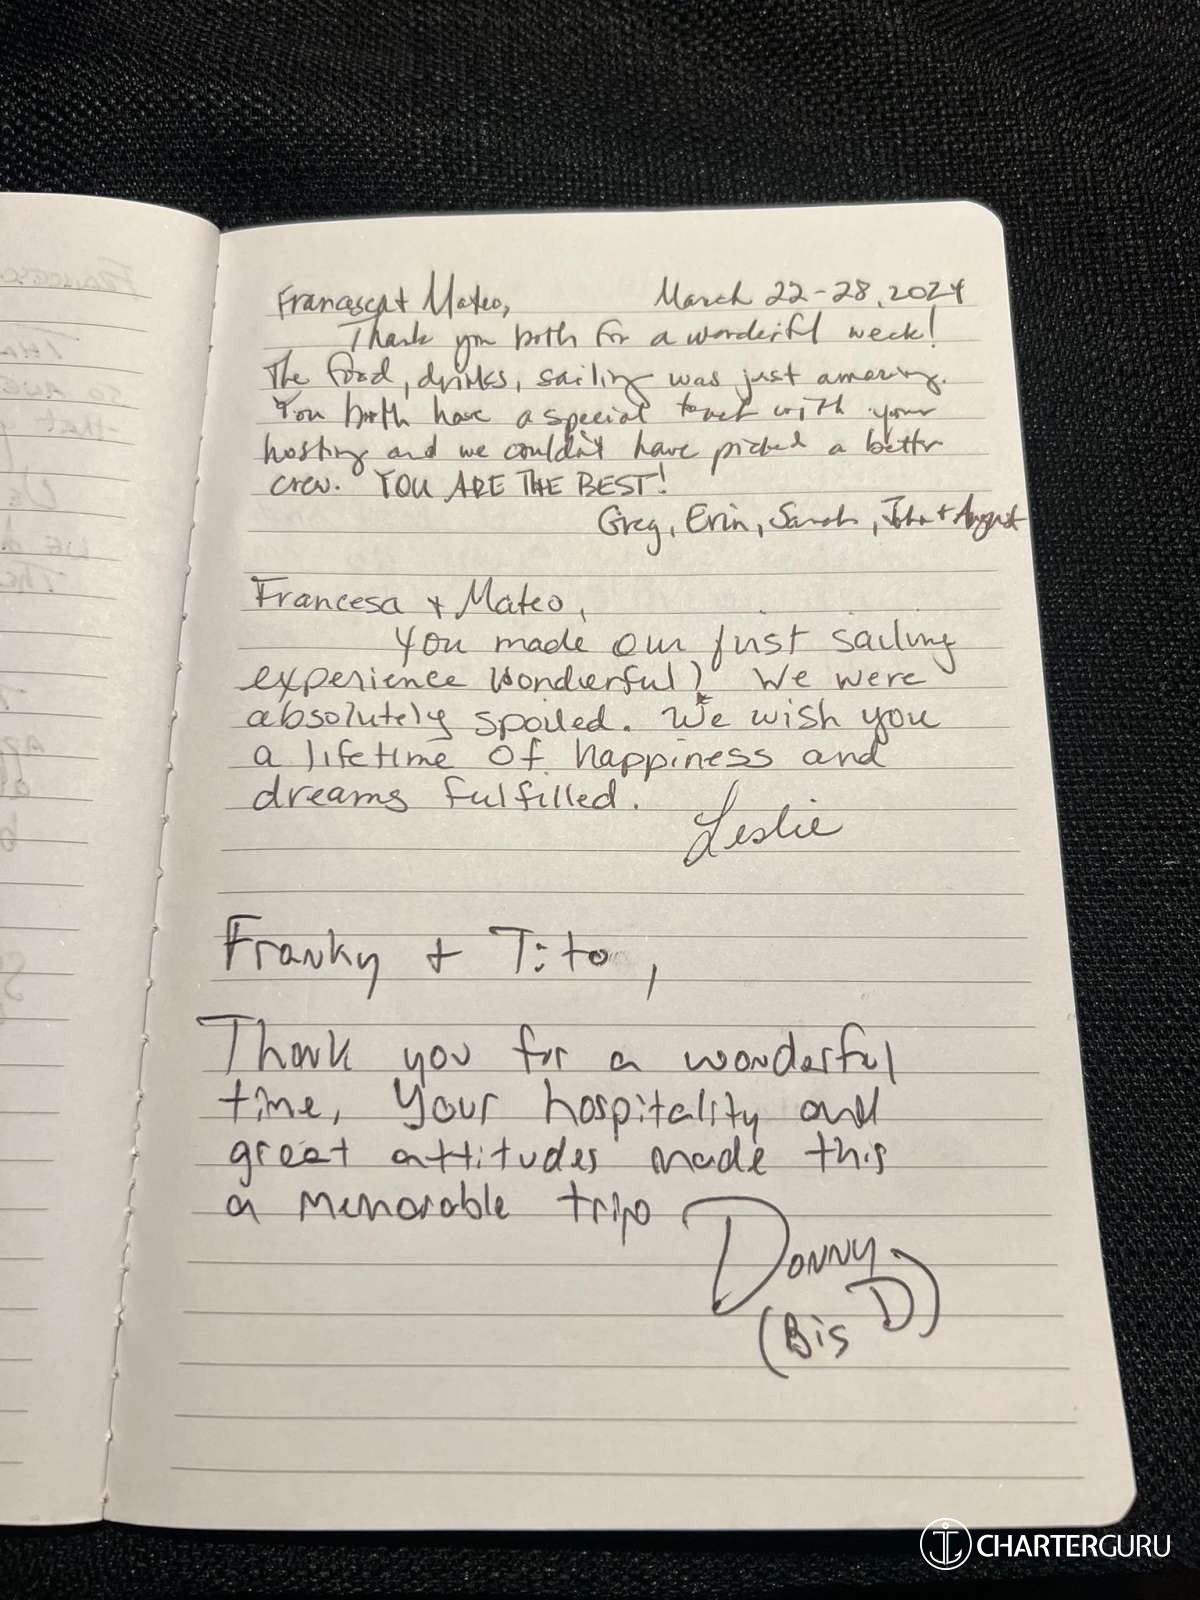 Francesca + Mateo, March 22-28, 2024
Thank you both for a wonderful week!
The food, drinks, sailing was just amazing.
You both have a special touch with your
hosting and we couldn't have picked a better
crew. YOU ARE THE BEST!
Greg, Erin, Sarah, John + August
Francesa + Mateo,
You made our first sailing
experience wonderful! We were
absolutely spoiled. We wish you
a lifetime of happiness and
dreams fulfilled.
Leslie
Franky + Tito,
Thank you for a wonderful
time, Your hospitality and
great attitudes made this
a memorable trip
Donny
(Big D)
CHARTERGURU